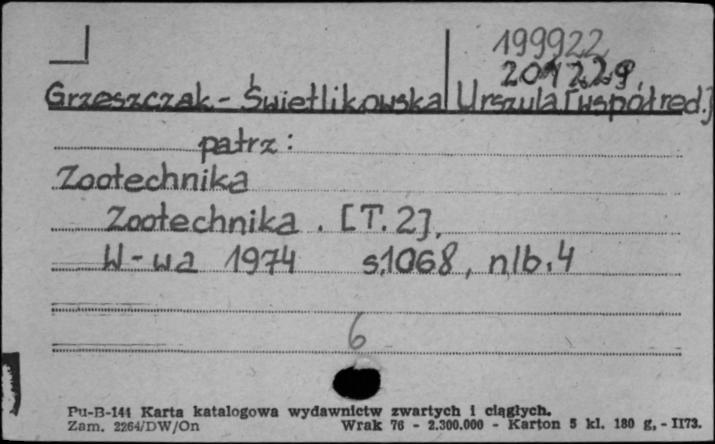 199922
201229
Grzeszczak-Świetlikowska Urszula [współred.]
patrz:
Zootechnika
Zootechnika. [T. 2].
W-wa 1974 s.1068, nlb.4
6
Pu-B-144 Karta katalogowa wydawnictw zwartych i ciągłych.
Zam. 2264/DW/On Wrak 76 - 2.300.000 - Karton 5 kl. 180 g, - II73.